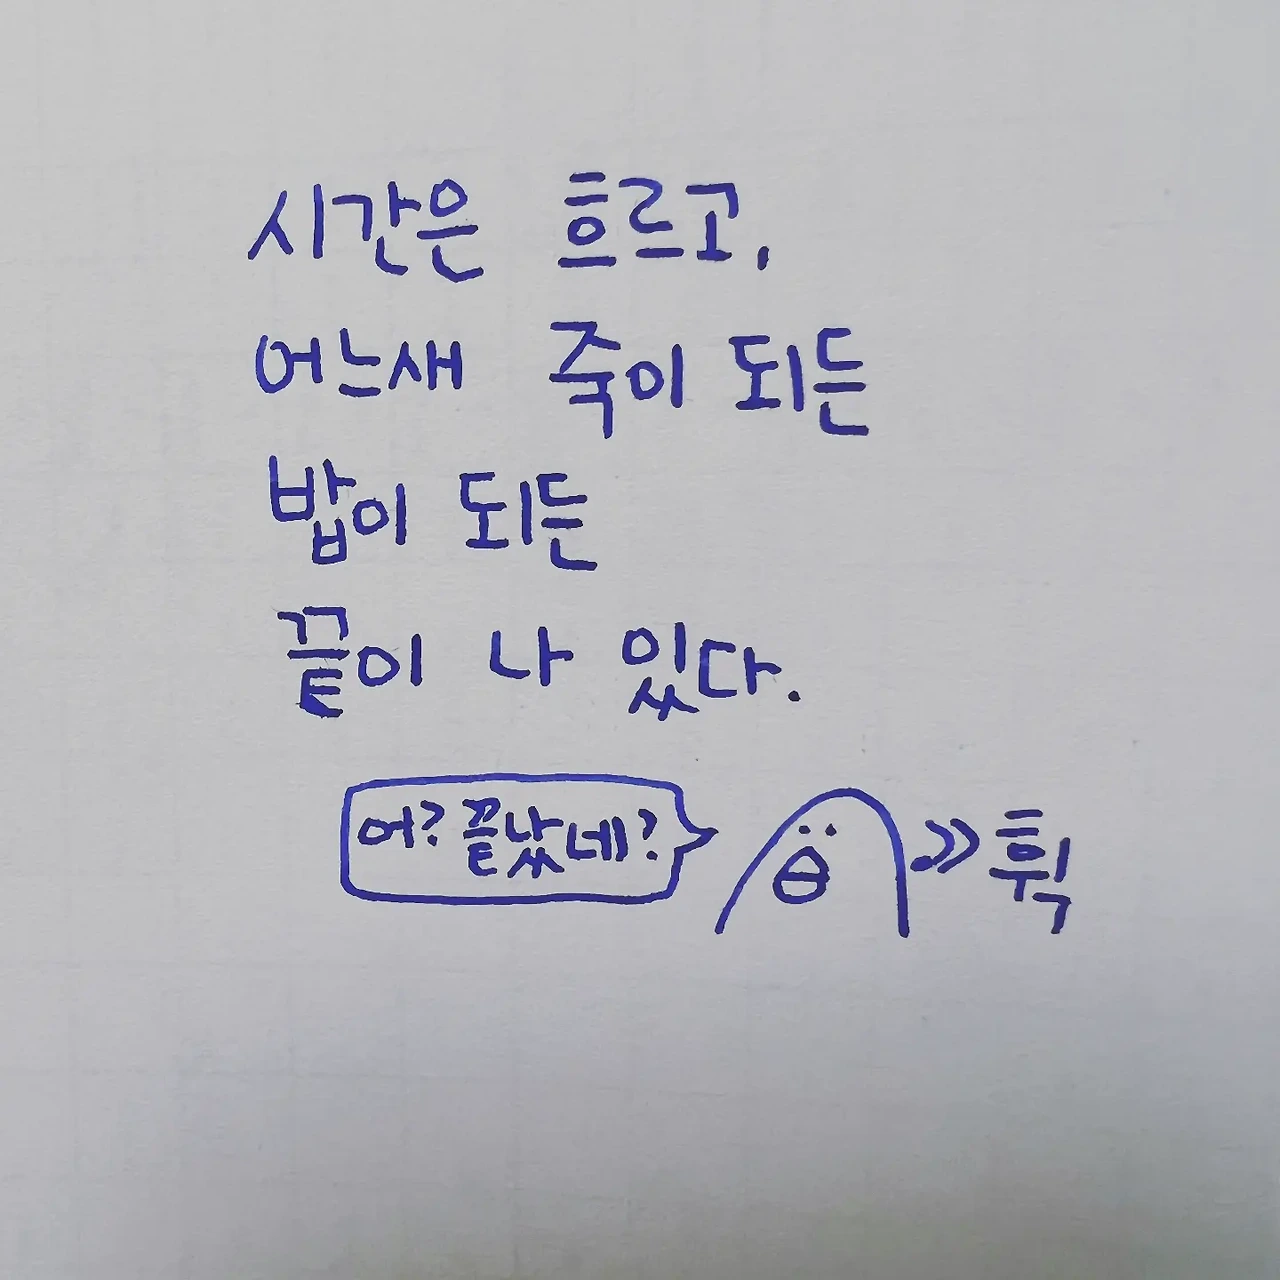 시간은 흐르고,
어느새 죽이 되든
밥이 되든
끝이 나 있다.
어? 끝났네?
휙